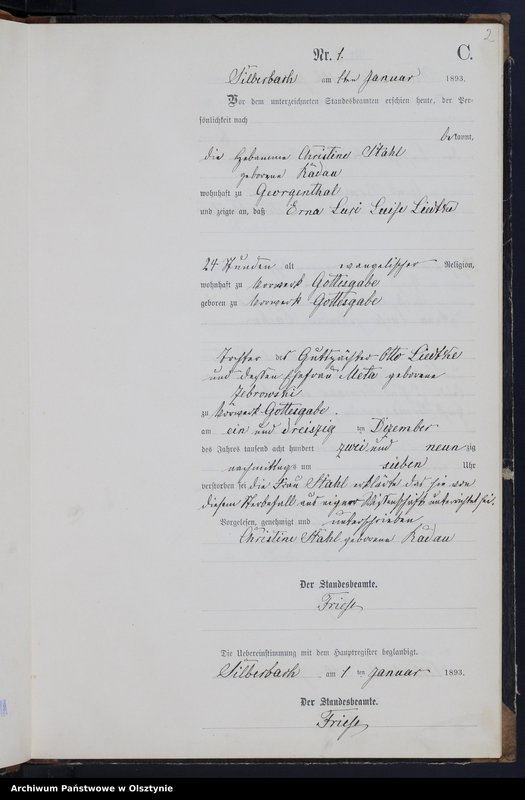 2
Nr. 1.
C.
Silberbach am 1ten Januar 1893.
Vor dem unterzeichneten Standesbeamten erschien heute, der Per-
sönlichkeit nach
bekannt,
die Hebamme Christine Stahl
geborene Radau
wohnhaft zu Georgenthal
und zeigte an, daß Erna Lusi Luise Liedtke
24 Stunden alt evangelischer Religion,
wohnhaft zu Vorwerk Gottesgabe
geboren zu Vorwerk Gottesgabe
Tochter des Gutspächter Otto Liedtke
und dessen Ehefrau Meta geborene
Zebrowski
zu Vorwerk Gottesgabe.
am ein und dreiszig ten Dezember
des Jahres tausend acht hundert zwei und neun zig
nachmittags um sieben Uhr
verstorben sei die Frau Stahl erklärte das sie von
diesem Sterbefall aus eigner Wissenschaft unterrichtet sei.
Vorgelesen, genehmigt und unterschrieben
Christine Stahl geborene Radau
Der Standesbeamte.
Friese
Die Uebereinstimmung mit dem Hauptregister beglaubigt.
Silberbach am 1 ten Januar 1893.
Der Standesbeamte.
Friese
Archiwum Państwowe w Olsztynie